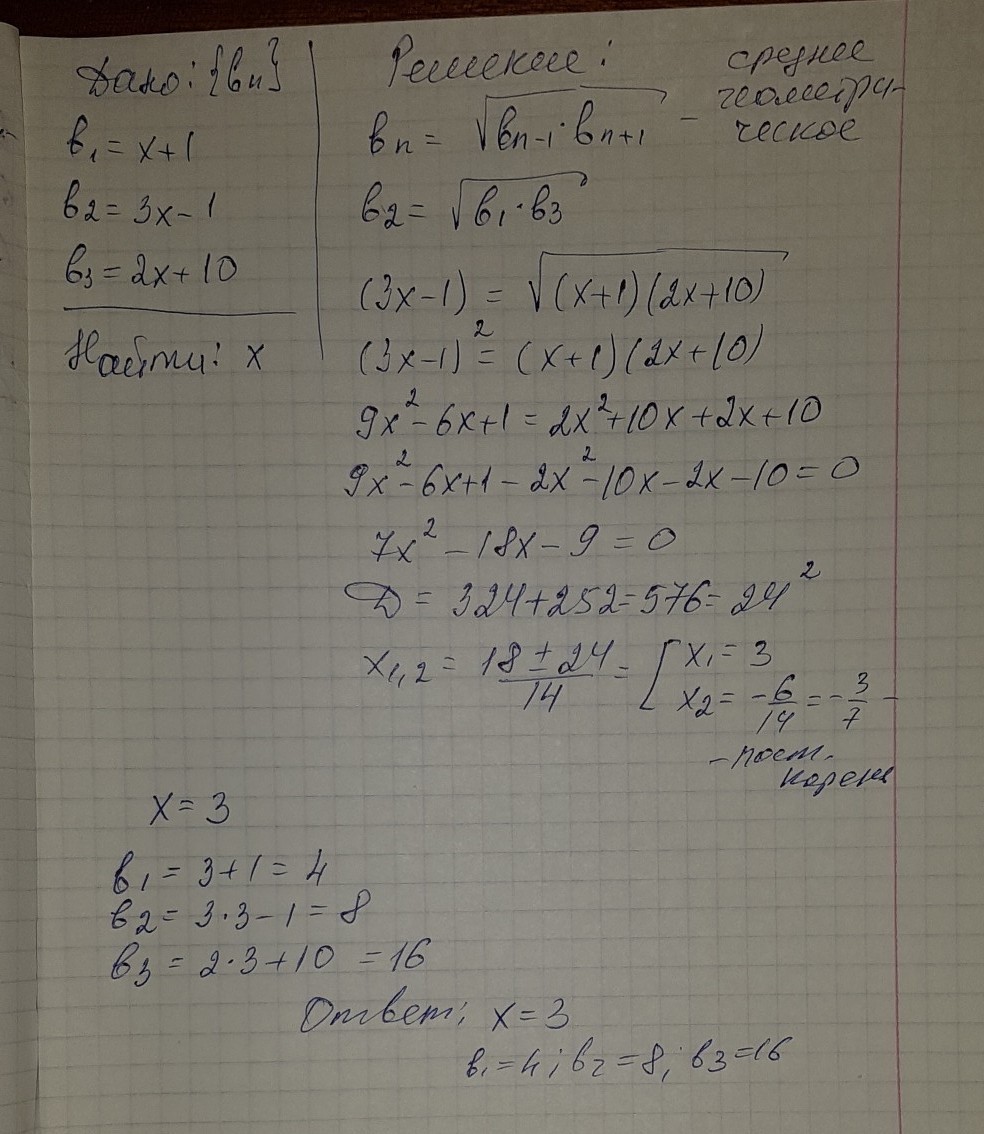 Дано: {bn}
b₁ = x+1
b₂ = 3x-1
b₃ = 2x+10
Найти: x
Решение:
bn = √(bn-1 · bn+1) - среднее
геометри-
ческое
b₂ = √(b₁ · b₃)
(3x-1) = √((x+1)(2x+10))
(3x-1)² = (x+1)(2x+10)
9x² - 6x + 1 = 2x² + 10x + 2x + 10
9x² - 6x + 1 - 2x² - 10x - 2x - 10 = 0
7x² - 18x - 9 = 0
D = 324 + 252 = 576 = 24²
x₁,₂ = (18 ± 24)/14 = [ x₁ = 3
x₂ = -6/14 = -3/7 -
- пост.
корень
x = 3
b₁ = 3+1 = 4
b₂ = 3·3-1 = 8
b₃ = 2·3+10 = 16
Ответ: x = 3
b₁ = 4; b₂ = 8; b₃ = 16